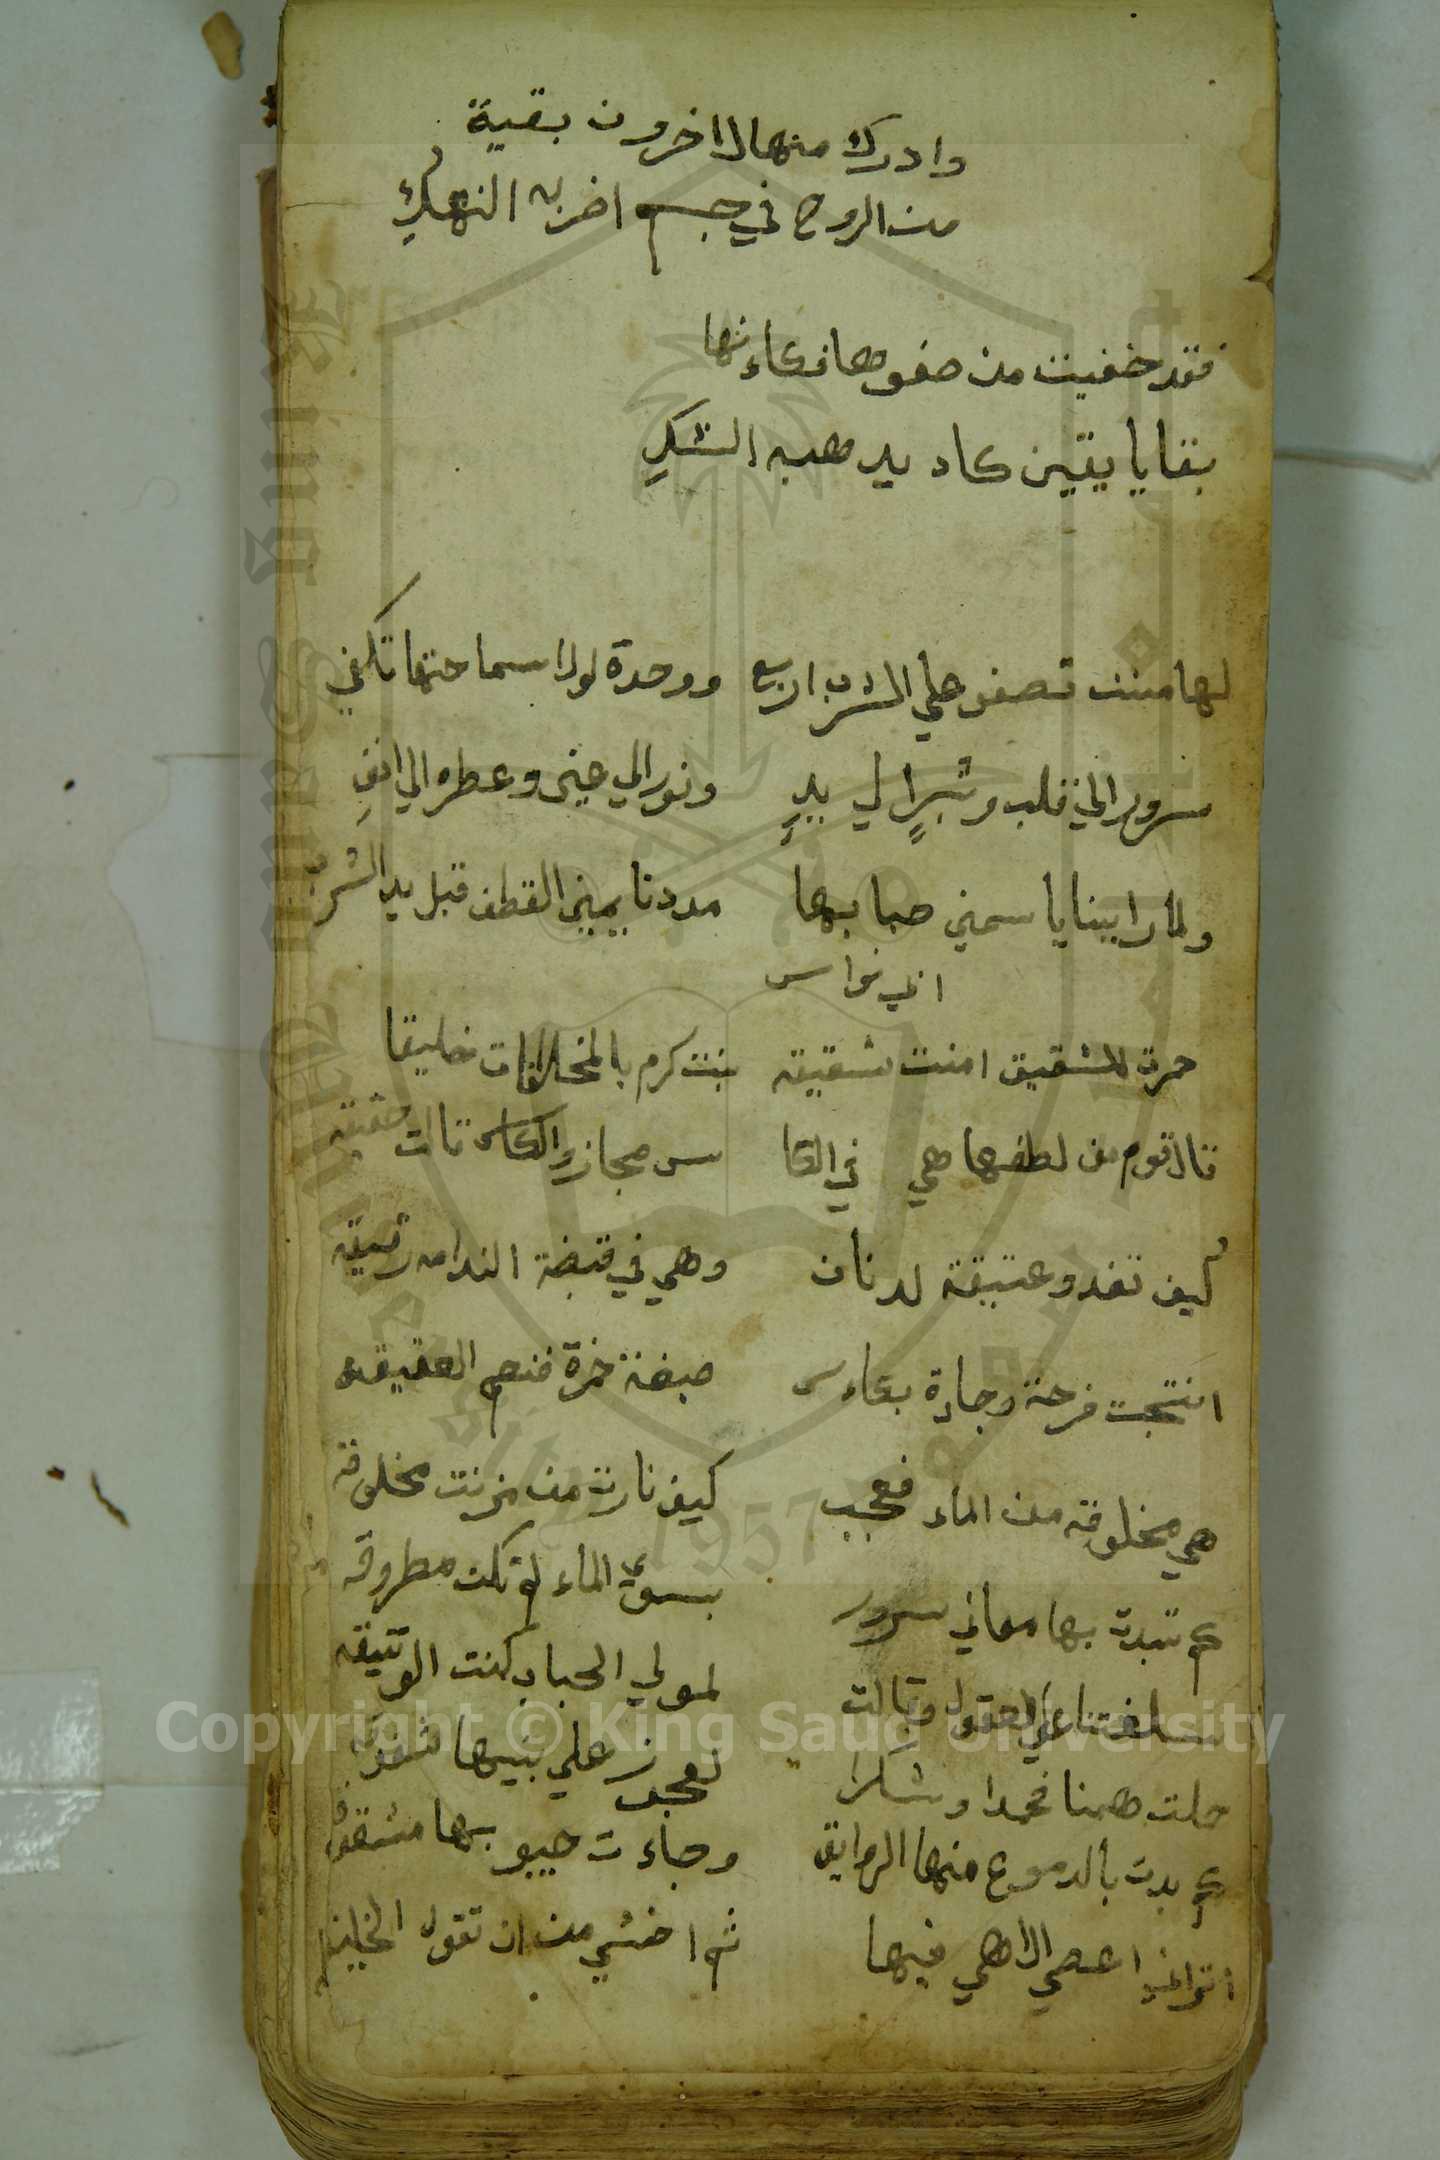 وادرك منها الاخرون بقية
من الروح في جسم اضر به النهك
فقد خفيت من صفوها فكاءنها
بقايا يقين كاد يدهبه الشك
لها منت تصفو علي الشرب اربع ووحدة لولا سماحتها تكفي
سرورالي قلب وتبرا لي يد ونورالي عيني وعطره الي انف
ولما راينا ياسمين حبابها مددنا يمين القطف قبل يد الشرب
ابي نواس
خمرت للشقيق امنت شقيقه بنت كرم بالمخالفات خليقا
قال قوم من لطفها هي في الكا س مجاز والكاس قالت حقيقه
كيف تغدو عتيقة لدنان وهي في قبضة الندامه رقيقه
انتجت فرحة وجادة بكاءس صبغة خمرة فنعم العقيقه
هي مخلوقه من الماء فعجب كيف نارت من مخلوقه
كم تبدت بها معاني سرور بسوي الماء لم تكن مطروقه
سلفتنا علي العقول وقالت لمولي الحباب كنت الوثيقه
حلت همنا فحمدا وشكرا لعجوز علي بنيها شفوقه
كم بدت بالدموع منها الروايق وجاءت جيوبها مشقوقه
اتراني اعصي الاهي فيها ثم اخشي من ان تقول الخليقه